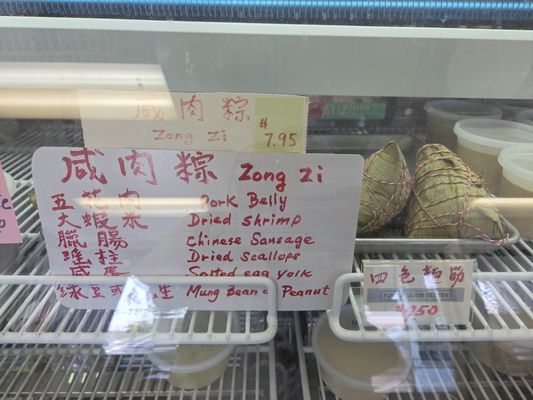 咸肉粽
Zong Zi
#7.95
咸肉粽 Zong Zi
五花肉 Pork Belly
大蝦米 Dried shrimp
臘腸 Chinese Sansage
瑤柱 Dried Scallops
咸蛋 Salted egg yolk
綠豆 花生 Mung Bean Peanut
四色麵筋
250